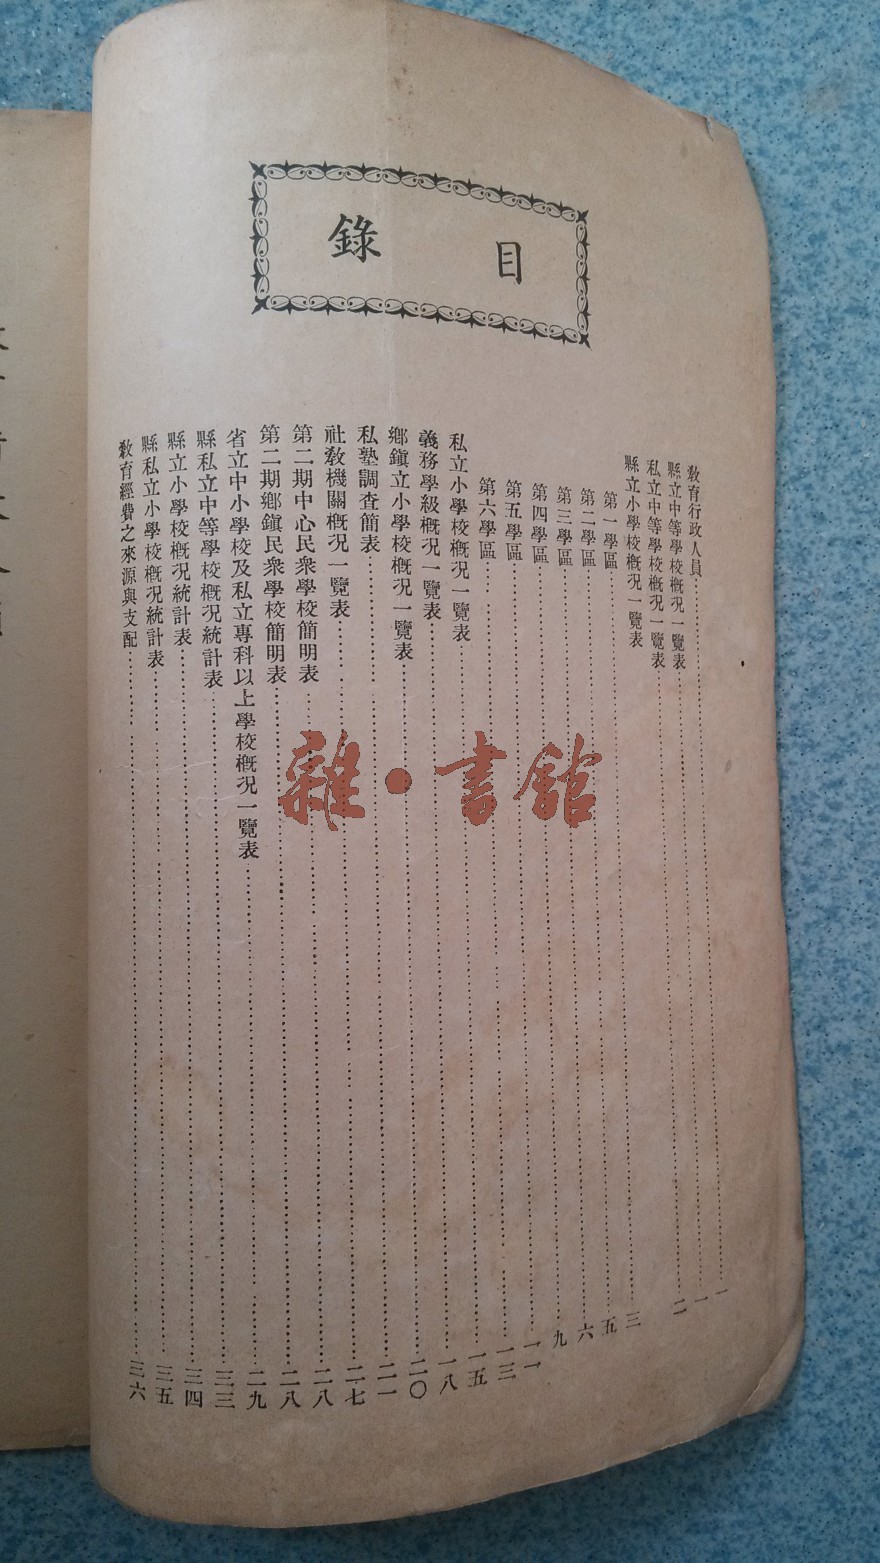 目錄
教育行政人員……一
縣立中等學校槪况一覽表……一
私立中等學校槪况一覽表……二
縣立小學校槪况一覽表
第一學區……三
第二學區……五
第三學區……六
第四學區……九
第五學區……一一
第六學區……一三
私立小學校槪况一覽表……一五
義務學級槪况一覽表……一八
鄉鎮立小學校槪况一覽表……二〇
私塾調查簡表……二一
社教機關槪况一覽表……二七
第二期中心民衆學校簡明表……二八
第二期鄉鎮民衆學校簡明表……二八
省立中小學校及私立專科以上學校槪况一覽表……二九
縣私立中等學校槪况統計表……三三
縣立小學校槪况統計表……三四
縣私立小學校槪况統計表……三五
教育經費之來源與支配……三六
雜·書館